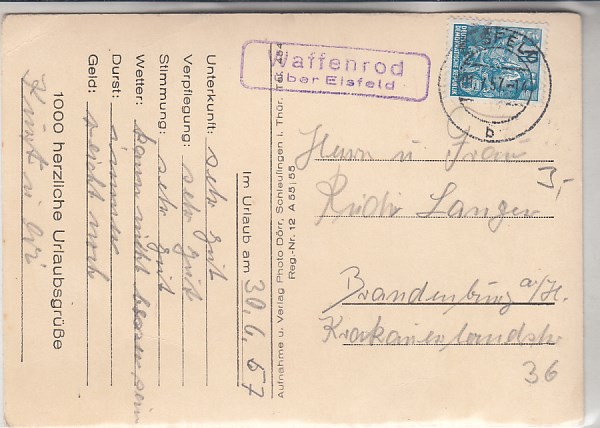 Waffenrod
über Eisfeld
EISFELD
57-17
b
DEUTSCHE
DEMOKRATISCHE REPUBLIK
Herrn u. Frau
Rudi Langer
3,-
Brandenburg a/H.
Krakauerlandstr
36
Aufnahme u. Verlag Photo Dörr, Schleusingen i. Thür. Tel. 254
Reg.-Nr. 12 A 55/55
Im Urlaub am 30. 6. 57
Unterkunft: sehr gut
Verpflegung: sehr gut
Stimmung: sehr gut
Wetter: kann nicht besser sein
Durst: immer
Geld: reicht noch
1000 herzliche Urlaubsgrüße
Kurt u.